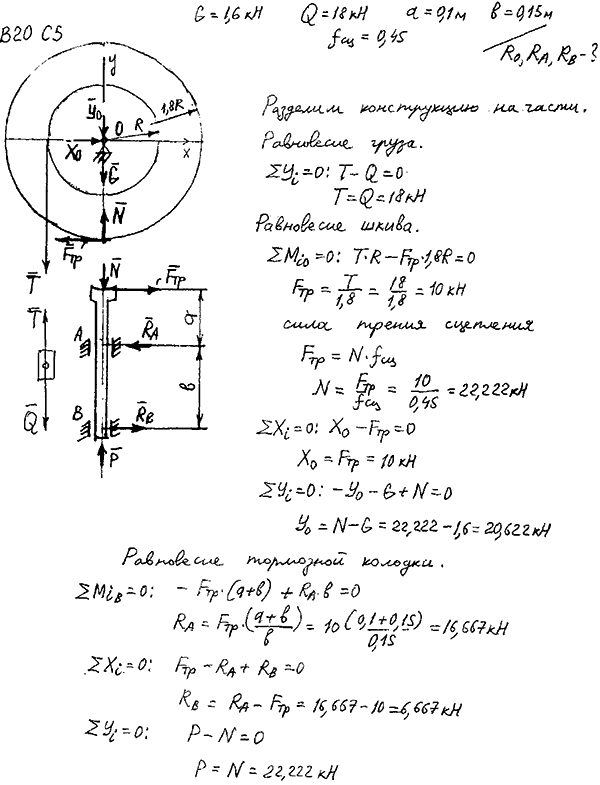 G = 1,6 кН Q = 18 кН a = 0,1 м b = 0,15 м
B20 C5
fсц = 0,45
R₀, R_A, R_B - ?
y
Y̅₀
O
R
1,8R
X̅₀
x
G̅
N̅
F̅тр
T̅
N̅
F̅тр
T̅
a
A
R̅_A
b
Q̅
B
R̅_B
P̅
Разделим конструкцию на части.
Равновесие груза.
ΣYi=0: T - Q = 0
T = Q = 18 кН
Равновесие шкива.
ΣMio=0: T·R - Fтр·1,8R = 0
Fтр = T/1,8 = 18/1,8 = 10 кН
сила трения сцепления
Fтр = N·fсц
N = Fтр/fсц = 10/0,45 = 22,222 кН
ΣXi=0: X₀ - Fтр = 0
X₀ = Fтр = 10 кН
ΣYi=0: -Y₀ - G + N = 0
Y₀ = N - G = 22,222 - 1,6 = 20,622 кН
Равновесие тормозной колодки.
ΣMiB=0: - Fтр·(a+b) + R_A·b = 0
R_A = Fтр·((a+b)/b) = 10((0,1+0,15)/0,15) = 16,667 кН
ΣXi=0: Fтр - R_A + R_B = 0
R_B = R_A - Fтр = 16,667 - 10 = 6,667 кН
ΣYi=0: P - N = 0
P = N = 22,222 кН